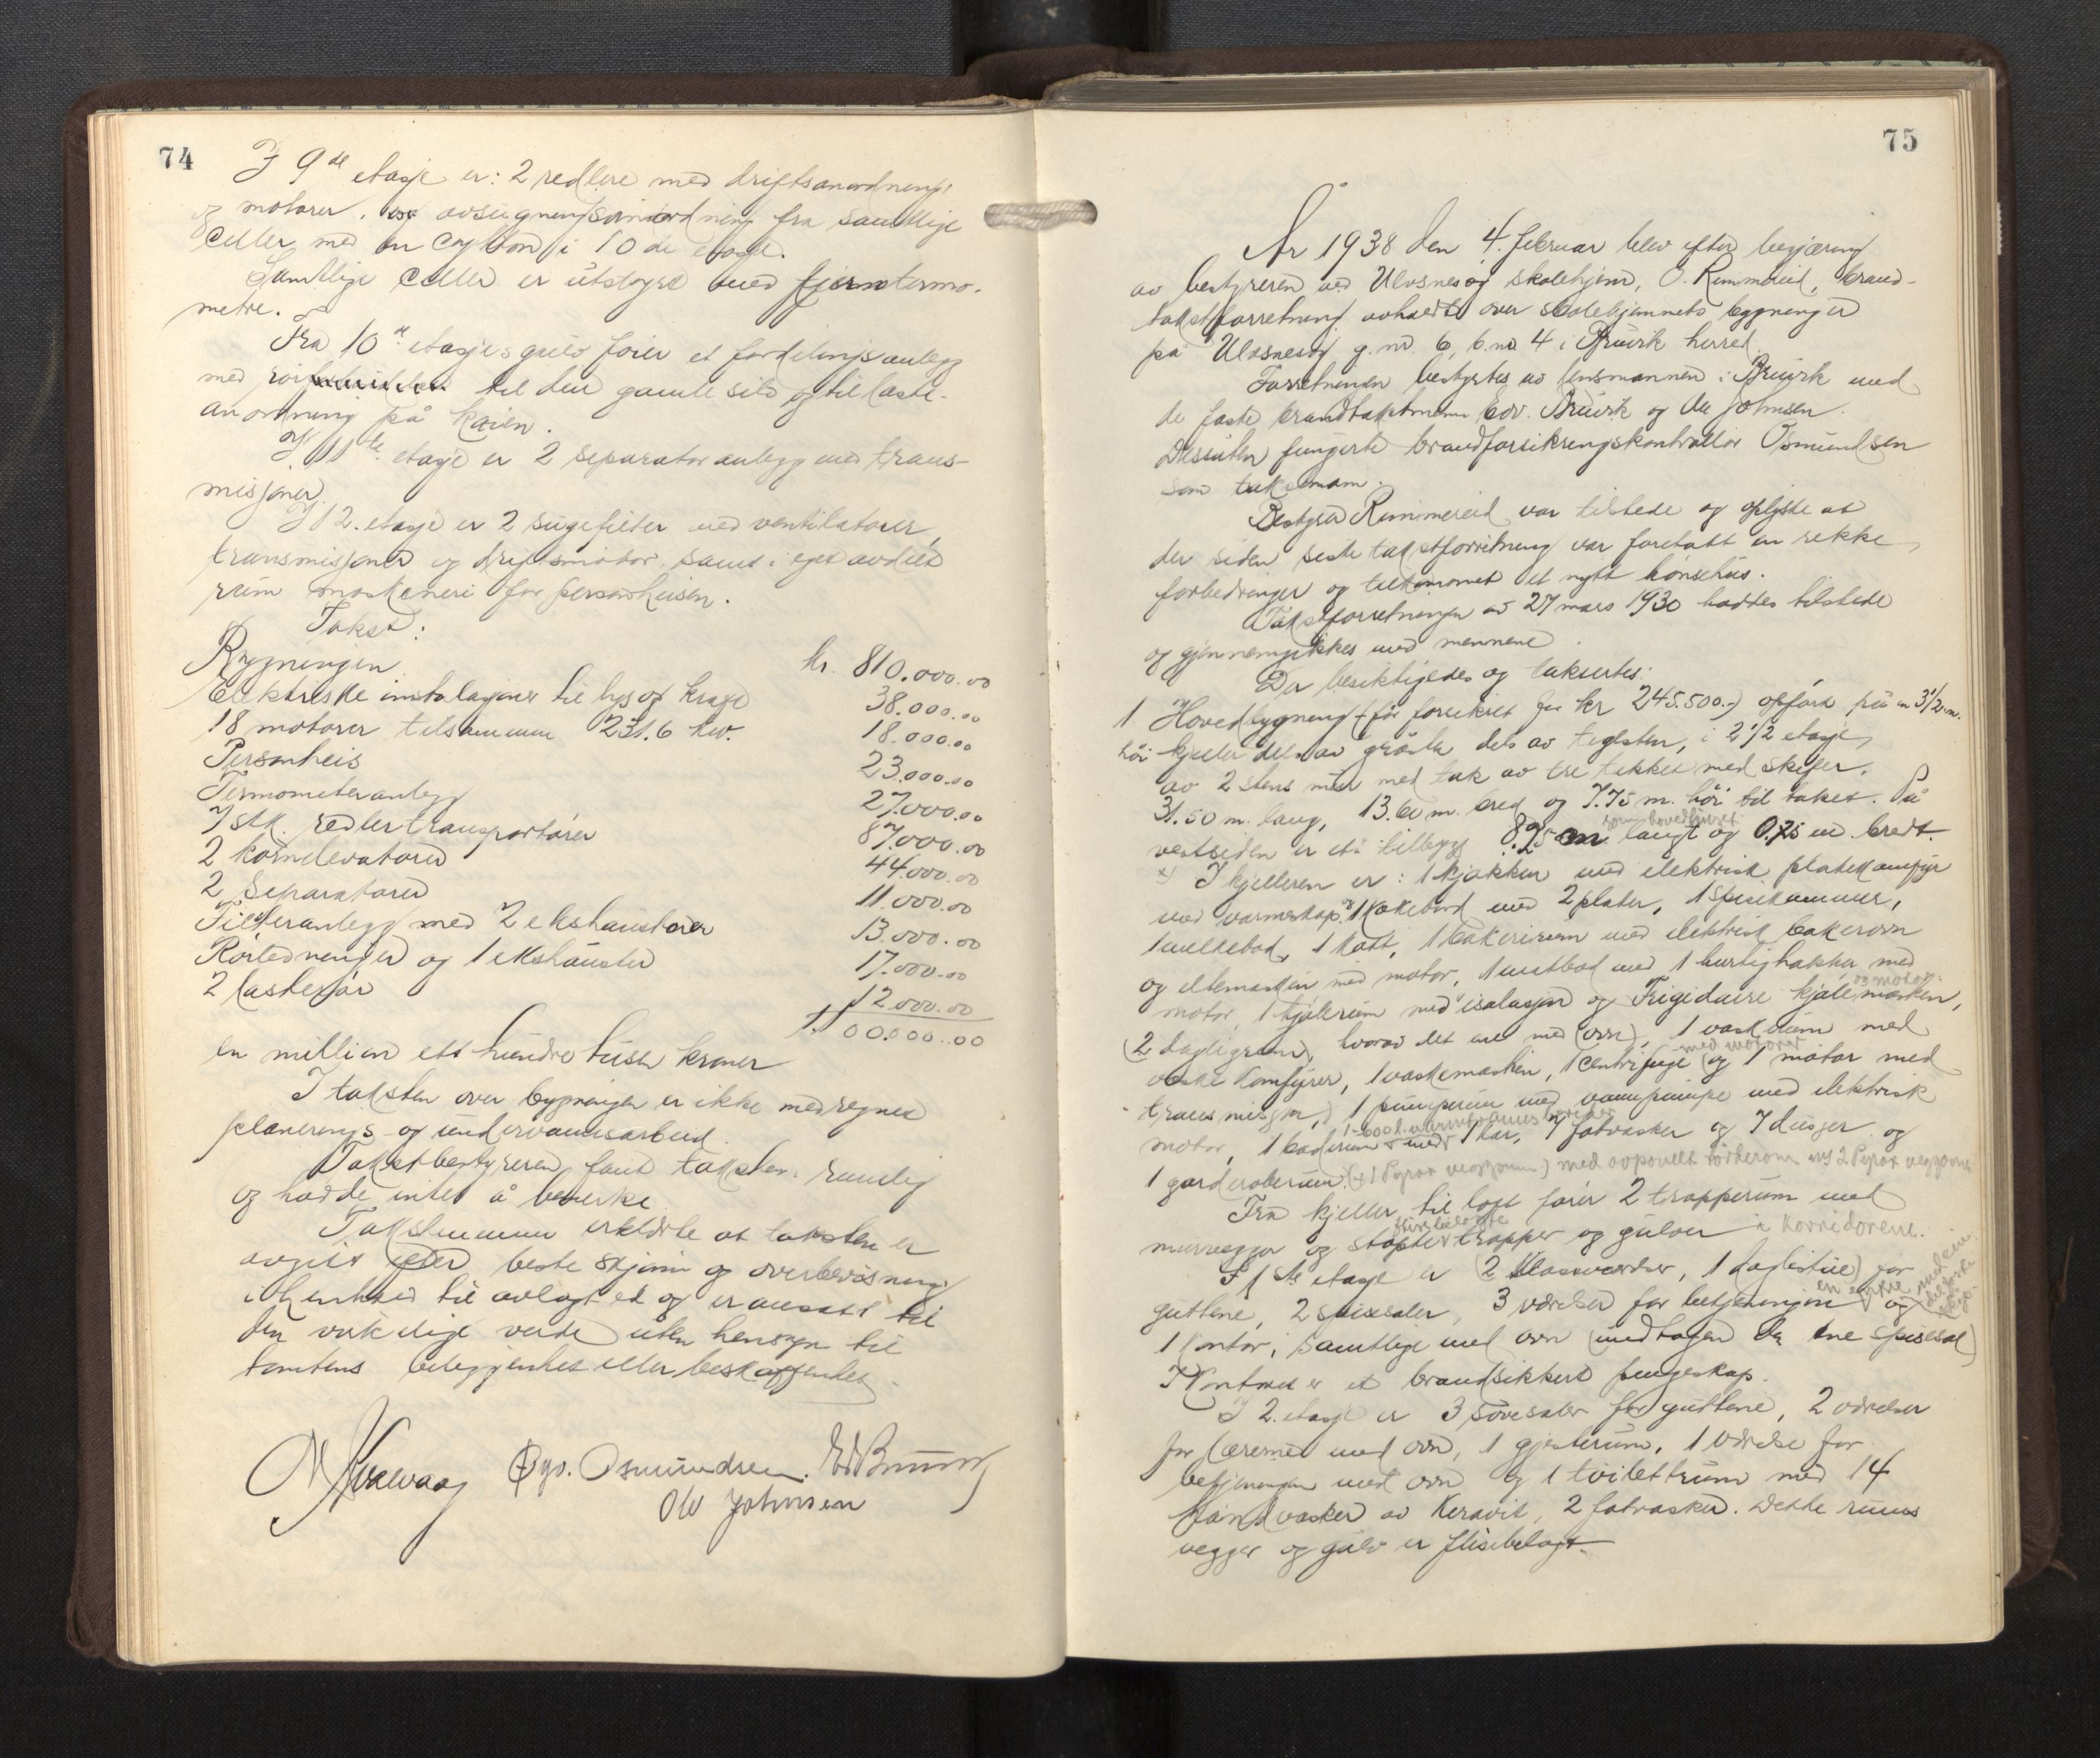 74
I 9de etasje er: 2 redlere med driftsanordning,
motorer, og avsugningsanordning fra samtlige
celler med en cyklon i 10de etasje.
Samtlige celler er utstyrt med fjerntermo-
metre.
Fra 10de etasjes gulv fører et fordelingsanlegg
med rør til den gamle silo og til laste-
anordning på kaien.
I 11te etasje er 2 separatoranlegg med trans-
misjoner.
I 12. etasje er 2 sugefilter med ventilatorer,
transmisjoner og driftsmotor, samt i eget avdelt
rum maskineri for personheisen.
Takst:
Bygningen kr. 810.000.00
Elektriske instalasjoner til lys og kraft 38.000.00
18 motorer tilsammen 231.6 kw. 18.000.00
Personheis 23.000.00
Termometeranlegg 27.000.00
7 stk. redlertransportører 87.000.00
2 kornelevatorer 44.000.00
2 Separatorer 11.000.00
Filteranlegg med 2 ekshaustorer 13.000.00
Rørledninger og 1 ekshauster 17.000.00
2 lasterør 12.000.00
1.100.000.00
en million ett hundre tusen kroner
I taksten over bygningen er ikke medregnet
planerings- og undervannsarbeid.
Takstbestyreren fant taksten rimelig
og hadde intet å bemerke
Takstmennene erklærte at taksten er
avgitt efter beste skjønn og overbevisning
i henhold til avlagt ed og er ansatt til
den virkelige verdi uten hensyn til
tomtens beliggenhet eller beskaffenhet.
Øyv. Osmundsen. Ed Bruvik
Ole Johnsen
75
År 1938 den 4. februar blev efter begjæring
av bestyreren ved Ulvsnesøy skolehjem, O. Rimmereid, brand-
takstforretning avholdt over skolehjemmets bygninger
på Ulvsnesøy g.nr. 6, b.nr. 4 i Bruvik herred.
Forretningen bestyrtes av lensmannen i Bruvik med
de faste brandtakstmenn Edv. Bruvik og Ole Johnsen.
Dessuten fungerte brandforsikringskontrollør Osmundsen
som taksmann.
Bestyrer Rimmereid var tilstede og oplyste at
der siden siste takstforretning var foretatt en rekke
forbedringer og tilkommet et nytt hønsehus.
Takstforretningen av 27 mars 1930 haddes tilstede
og gjennemgikkes med mennene.
Der besiktigedes og taksertes:
1. Hovedbygning (før forsikret for kr 245.500.-) opført på en 3 1/2 m.
høi kjeller dels av gråsten dels av teglsten, i 2 1/2 etasje,
av 2 stens mur med tak av tre tekket med skifer.
31.50 m. lang, 13.60 m. bred og 7.75 m. høi til taket. På
som hovedhuset
vestsiden er et tillegg 8.25 m. langt og 0.75 m. bredt.
x) I kjelleren er: 1 kjøkken med elektrisk platekomfyr
med varmeskap, 1 kokebord med 2 plater, 1 spisekammer,
1 melkebod, 1 kott, 1 bakerirum med elektrisk bakerovn
og eltemaskin med motor, 1 matbod med 1 hurtighakker med
og motor
motor, 1 kjølerum med isolasjon og Frigidaire kjølemaskin,
(2 dagligrum, hvorav det ene med ovn), 1 vaskerum med
med motorer
vaske komfyrer, 1 vaskemaskin, 1 centrifuge (og 1 motor med
transmisjon,) 1 pumperum med vannpumpe med elektrisk
1-600 l. varmtvannsbereder
motor, 1 baderum med 1 kar, 7 fotvasker og 7 dusjer og
1 garderoberum. (x 1 Pyrox veggovn) med avpanelt tørkerom m/ 2 Pyrox veggovner
Fra kjeller til loft fører 2 trapperum med
flisbelagte
murvegger og støpte trapper og gulver i korridorene.
I 1ste etasje er (2 klasseværelser, 1 daglistue) for
guttene, 2 spisesaler, 3 værelser for betjeningen og
1 kontor, samtlige med ovn (undtagen den ene spisesal)
I kontoret er et brandsikkert pengeskap.
I 2. etasje er 3 sovesaler for guttene, 2 værelser
for lærerne med ovn, 1 gjesterum, 1 værelse for
betjeningen med ovn og 1 toilettrum med 14
håndvasker av Keravit, 2 fotvasker. Dette rums
vegger og gulv er flisebelagt.